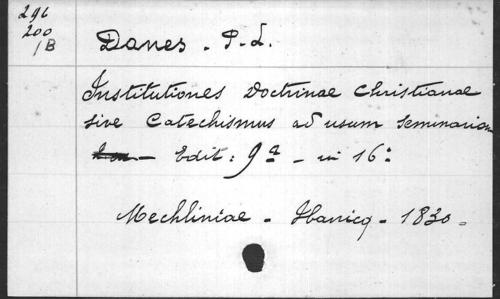 296
200
/B
Danes. P.L.
Institutiones Doctrinae Christianae
sive Catechismus ad usum seminarior
Edit: 9ª - in 16:
Mechliniae - Hanicq - 1830 =